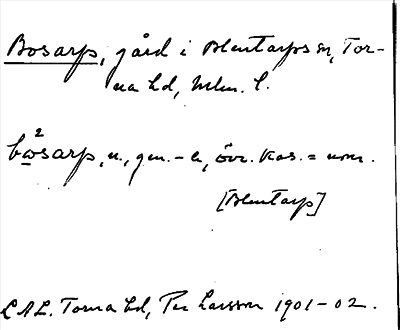 Bosarp, gård i Blentarps sn, Tor-
na hd, Mlm. l.
bωsarp, n., gen. -s, övr. kas. = nom.
[Blentarp]
LAL. Torna hd, Per Larsson 1901-02.